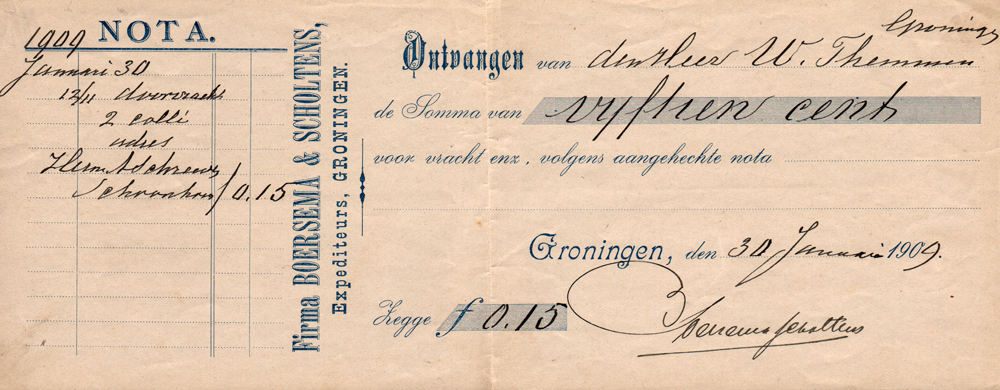 NOTA.
1909
Januari 30
12/11
2 colli
adres
0.15
Firma BOERSEMA & SCHOLTENS,
Expediteurs, GRONINGEN.
Groningen
Ontvangen van den Heer W. Themmen
de Somma van vijftien cent
voor vracht enz, volgens aangehechte nota
Groningen, den 30 Januari 1909.
Zegge f 0.15
Boersema Scholtens